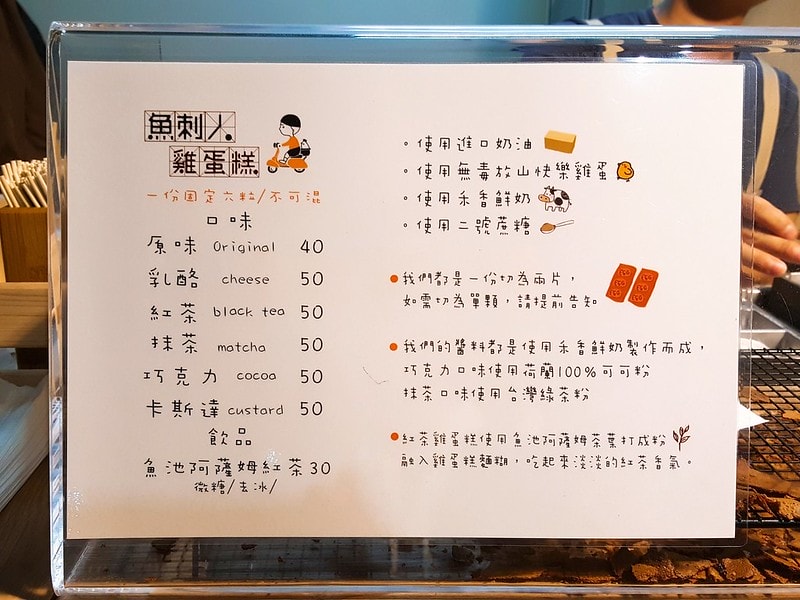 魚刺人
雞蛋糕
一份固定六粒/不可混
口味
原味 Original 40
乳酪 cheese 50
紅茶 black tea 50
抹茶 matcha 50
巧克力 cocoa 50
卡斯達 custard 50
飲品
魚池阿薩姆紅茶30
微糖/去冰/
。使用進口奶油
。使用無毒放山快樂雞蛋
。使用禾香鮮奶
。使用二號蔗糖
我們都是一份切為兩片，
如需切為單顆，請提前告知
我們的醬料都是使用禾香鮮奶製作而成，
巧克力口味使用荷蘭100%可可粉
抹茶口味使用台灣綠茶粉
紅茶雞蛋糕使用魚池阿薩姆茶葉打成粉
融入雞蛋糕麵糊，吃起來淡淡的紅茶香氣。